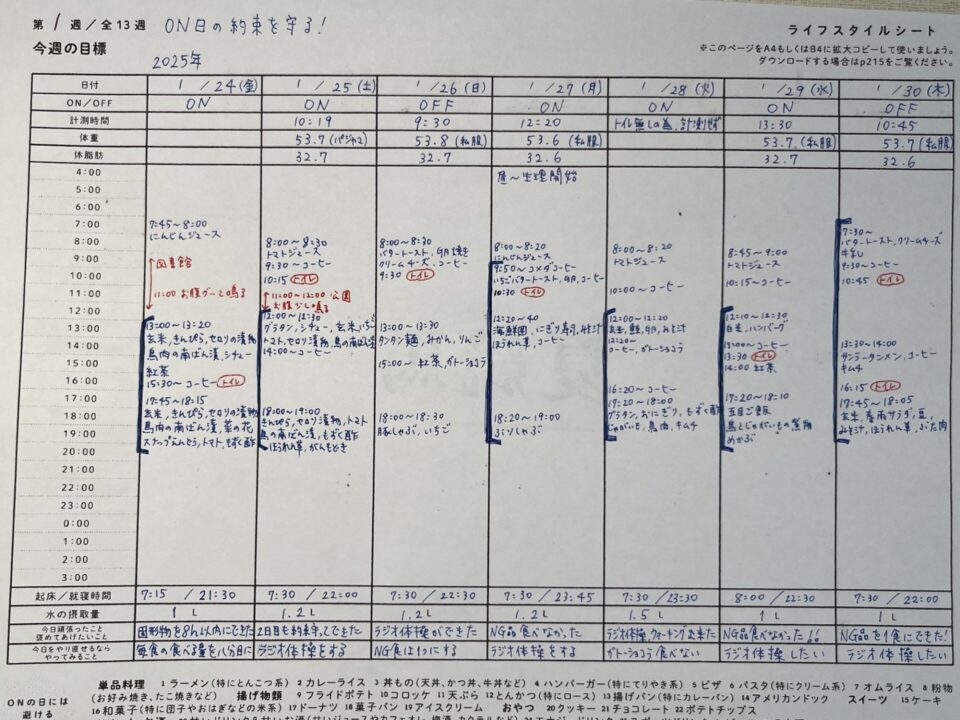 第1週/全13週 ON日の約束を守る!
今週の目標
2025年
ライフスタイルシート
※このページをA4もしくはB4に拡大コピーして使いましょう。
ダウンロードする場合はp215をご覧ください。
日付 1/24(金) 1/25(土) 1/26(日) 1/27(月) 1/28(火) 1/29(水) 1/30(木)
ON/OFF ON ON OFF ON ON ON OFF
計測時間 10:19 9:30 12:20 トイレ無しの為、計測せず 13:30 10:45
体重 53.7(パジャマ) 53.8(私服) 53.6(私服) 53.7(私服) 53.7(私服)
体脂肪 32.7 32.7 32.6 32.7 32.6
4:00
5:00
6:00
7:00
8:00
9:00
10:00
11:00
12:00
13:00
14:00
15:00
16:00
17:00
18:00
19:00
20:00
21:00
22:00
23:00
0:00
1:00
2:00
3:00
7:45~8:00
にんじんジュース
図書館
11:00 お腹グーと鳴る
13:00~13:20
玄米,きんぴら,セロリの漬物
鳥肉の南ばん漬,シチュー
紅茶
15:30~コーヒー トイレ
17:45~18:15
玄米,きんぴら,セロリの漬物
鳥肉の南ばん漬,菜の花
スナップえんどう,トマト,もずく酢
8:00~8:30
トマトジュース
9:30~コーヒー
10:15 トイレ
11:00~12:00 公園
お腹少し鳴る
12:00~12:30
グラタン,シチュー,玄米,いちご
トマト,セロリ漬物,鳥の南ばん漬
14:00~コーヒー
18:00~19:00
きんぴら,セロリ漬物,トマト
鳥の南ばん漬,もずく酢
ほうれん草,がんもどき
8:00~8:30
バタートースト,卵焼き
クリームチーズ,コーヒー
9:30 トイレ
13:00~13:30
タンタン麺,みかん,りんご
15:00~紅茶,ガトーショコラ
18:00~18:30
豚しゃぶ,いちご
昼~生理開始
8:00~8:20
にんじんジュース
9:50~コメダコーヒー
いちごバタートースト,卵,コーヒー
10:30 トイレ
12:20~40
海鮮園,にぎり寿司,みそ汁
ほうれん草,コーヒー
18:20~19:00
ぶりしゃぶ
8:00~8:20
トマトジュース
10:00~コーヒー
12:00~12:20
玄米,鮭,卵,みそ汁
12:20~
コーヒー,ガトーショコラ
16:20~コーヒー
17:20~18:00
グラタン,おにぎり,もずく酢
じゃがいも,鳥肉,キムチ
8:45~9:00
トマトジュース
10:15~コーヒー
12:10~12:30
白米,ハンバーグ
13:00~コーヒー
13:30 トイレ
14:00 紅茶
17:20~18:10
五目ご飯
鳥とじゃがいもの煮物
めかぶ
7:30~
バタートースト,クリームチーズ
牛乳
9:30~コーヒー
10:45 トイレ
13:30~14:00
タンラータンメン,コーヒー
キムチ
16:15 トイレ
17:45~18:05
玄米,春雨サラダ,豆,
みそ汁,ほうれん草,ぶた肉
起床/就寝時間 7:15/21:30 7:30/22:00 7:30/22:30 7:30/23:45 7:30/23:30 8:00/22:30 7:30/22:00
水の摂取量 1L 1.2L 1.2L 1.2L 1.5L 1L 1L
今日頑張ったこと
褒めてあげたいこと 固形物を8h以内にできた 2日目を約束守ってできた ラジオ体操ができた NG品食べなかった ラジオ体操,ウォーキング出来た NG品食べなかった!! NG品を1食にできた!
今日をやり直せるなら
やってみること 毎食の食べる量を八分目に ラジオ体操をする NG食は1つにする ラジオ体操をする ガトーショコラ食べない ラジオ体操したい ラジオ体操したい
ONの日には
避ける
単品料理 1ラーメン(特にとんこつ系) 2カレーライス 3丼もの(天丼、かつ丼、牛丼など) 4ハンバーガー(特にてりやき系) 5ピザ 6パスタ(特にクリーム系) 7オムライス 8粉物
(お好み焼き、たこ焼きなど) 揚げ物類 9フライドポテト 10コロッケ 11天ぷら 12とんかつ(特にロース) 13揚げパン(特にカレーパン) 14アメリカンドック スイーツ 15ケーキ
16和菓子(特に団子やおはぎなどの米系) 17ドーナツ 18菓子パン 19アイスクリーム おやつ 20クッキー 21チョコレート 22ポテトチップス